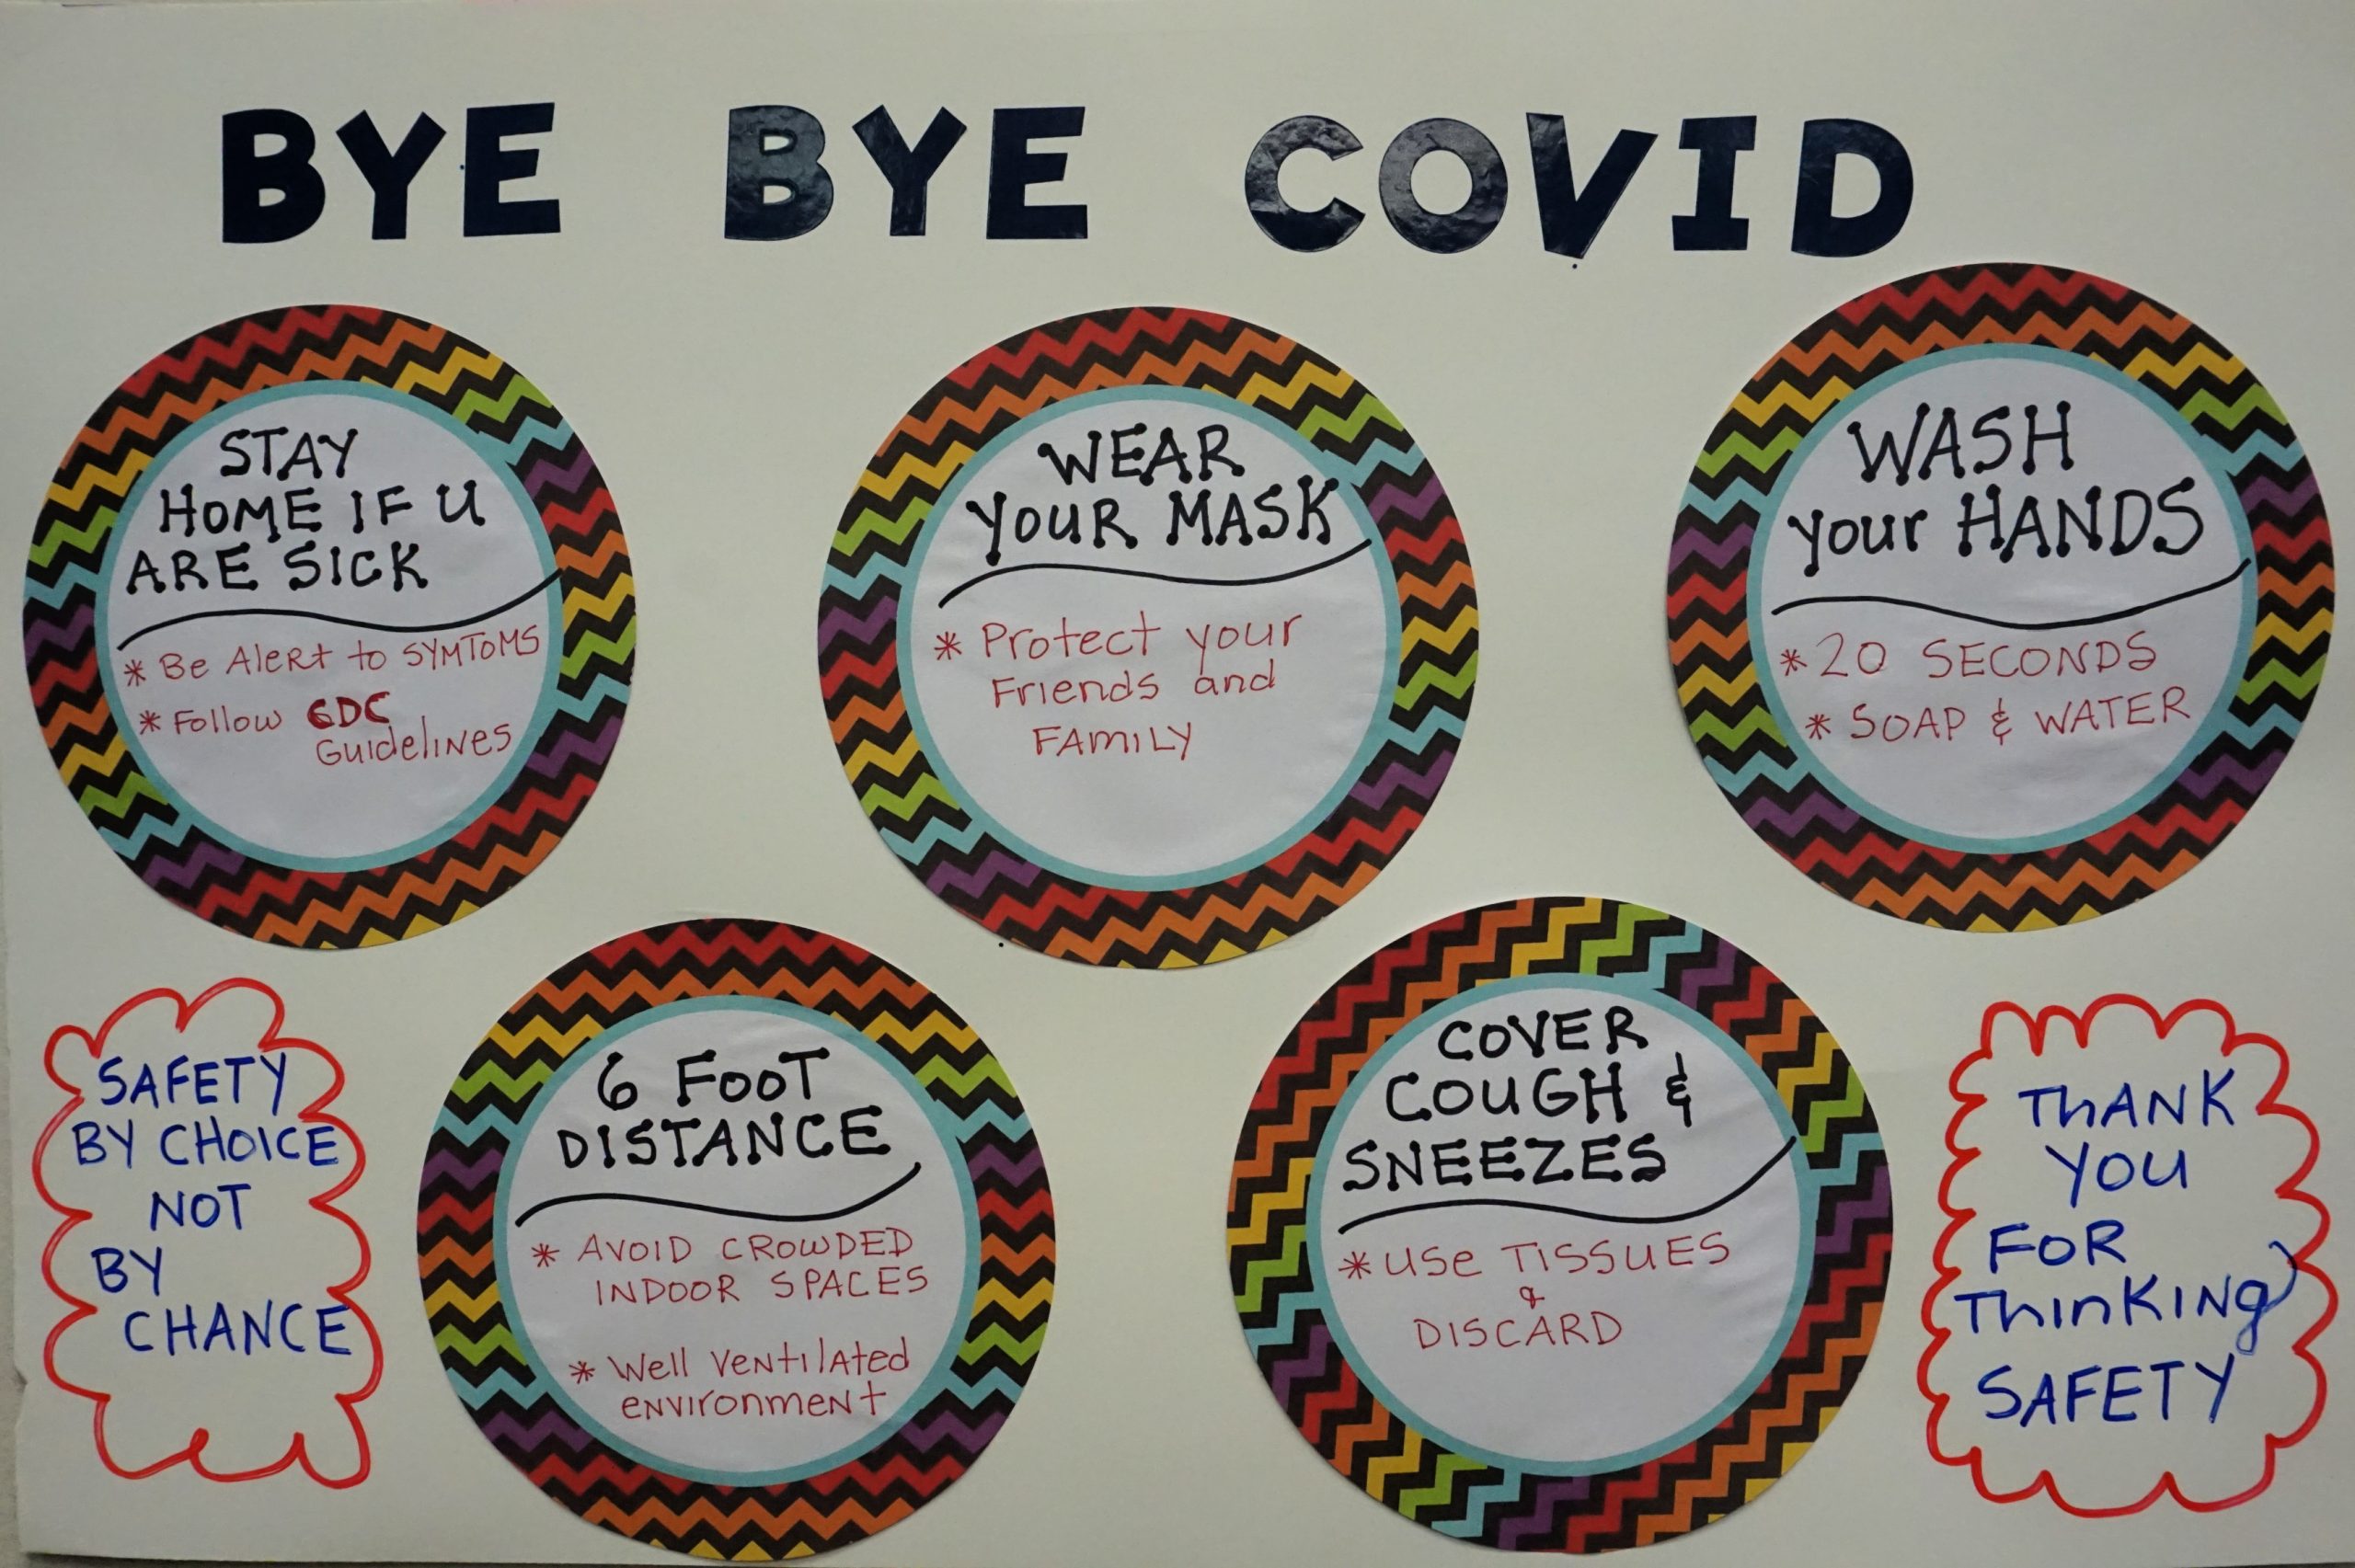 BYE BYE COVID
STAY
HOME IF U
ARE SICK
* Be Alert to SYMTOMS
* Follow CDC
Guidelines
WEAR
YOUR MASK
* Protect your
Friends and
FAMILY
WASH
your HANDS
* 20 SECONDS
* SOAP & WATER
SAFETY
BY CHOICE
NOT
BY
CHANCE
6 FOOT
DISTANCE
* AVOID CROWDED
INDOOR SPACES
* Well Ventilated
environment
COVER
COUGH &
SNEEZES
* USE TISSUES
&
DISCARD
THANK
YOU
FOR
THINKING
SAFETY